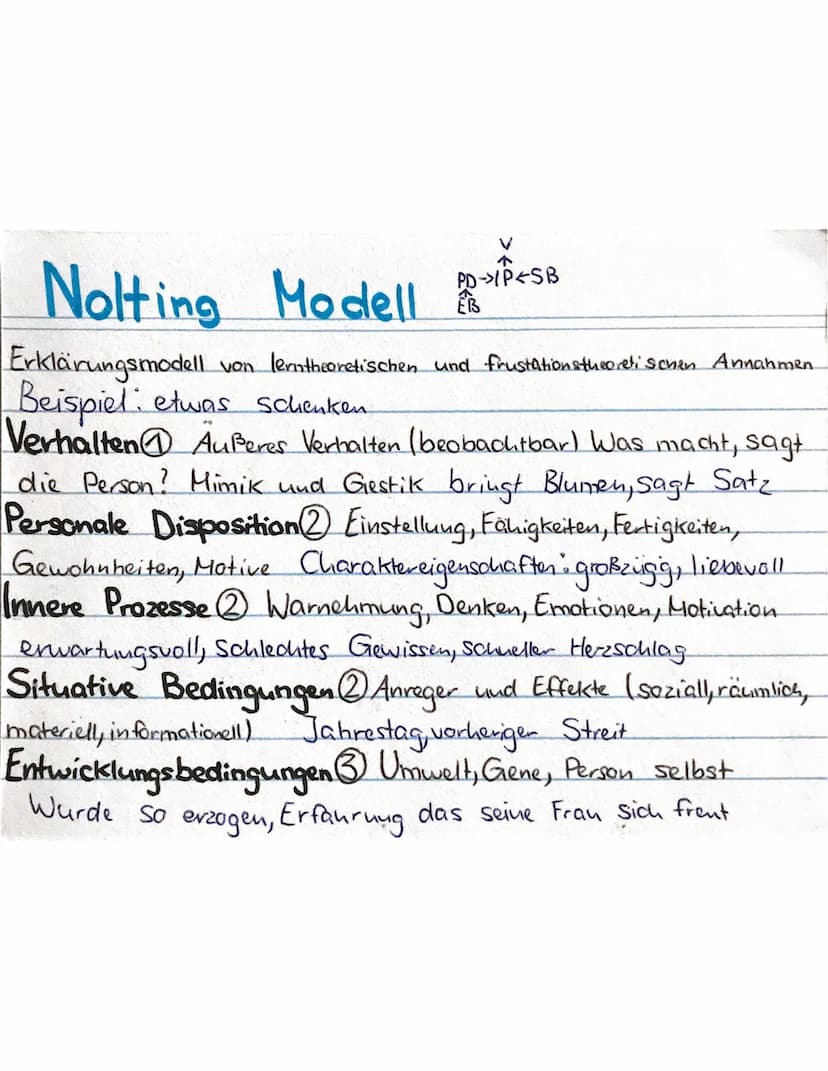 Nolting Modell
V
↑
PD→IP←SB
↑
EB
Erklärungsmodell von lerntheoretischen und frustationstheoretischen Annahmen
Beispiel: etwas schenken
Verhalten① Äußeres Verhalten (beobachtbar) Was macht, sagt
die Person? Mimik und Gestik bringt Blumen, sagt Satz
Personale Disposition② Einstellung, Fähigkeiten, Fertigkeiten,
Gewohnheiten, Motive Charaktereigenschaften: großzügig, liebevoll
Innere Prozesse② Warnehmung, Denken, Emotionen, Motivation
erwartungsvoll, schlechtes Gewissen, schneller Herzschlag
Situative Bedingungen② Anreger und Effekte (soziall, räumlich,
materiell, informationell) Jahrestag, vorheriger Streit
Entwicklungsbedingungen③ Umwelt, Gene, Person selbst
Wurde so erzogen, Erfahrung das seine Frau sich freut